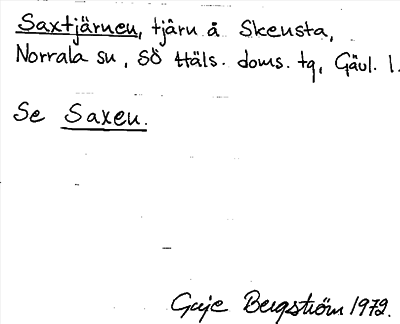 Saxtjärnen, tjärn å Skensta,
Norrala sn, SÖ Häls. doms. tg, Gävl. l.
Se Saxen.
Guje Bergström 1972.